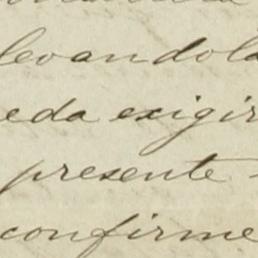 levandola
eda exigir
presente
confirme